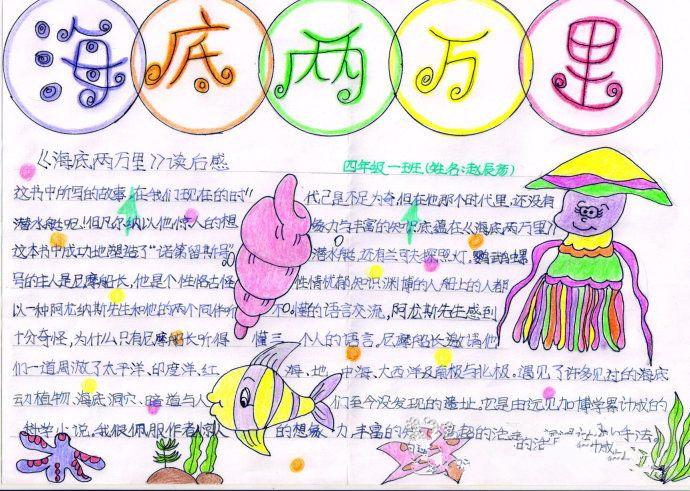 海底两万里
《海底两万里》读后感
四年级一班(姓名:赵辰荡)
这书中所写的故事,在我们现在的时代已是不足为奇,但在他那个时代里,还没有
潜水艇呢。但凡尔纳以他惊人的想像力与丰富的知识底蕴在《海底两万里》
这本书中成功地塑造了“诺第留斯号”潜水艇,还有兰可夫探照灯,鹦鹉螺
号的主人是尼摩船长,他是个性格古怪性情忧郁知识渊博的人船上的人都
以一种阿尤纳斯先生和他的两个同伴所不懂的语言交流,阿尤斯先生感到
十分奇怪,为什么只有尼摩船长听得懂三个人的语言,尼摩船长邀请他
们一道周游了太平洋、印度洋、红海、地中海、大西洋及南极与北极。遇见了许多见过的海底
动植物,海底洞穴、暗道与人们至今没发现的遗址,它是由远见加博学累计成的
科学小说。我很佩服作者惊人的想象力,丰富的